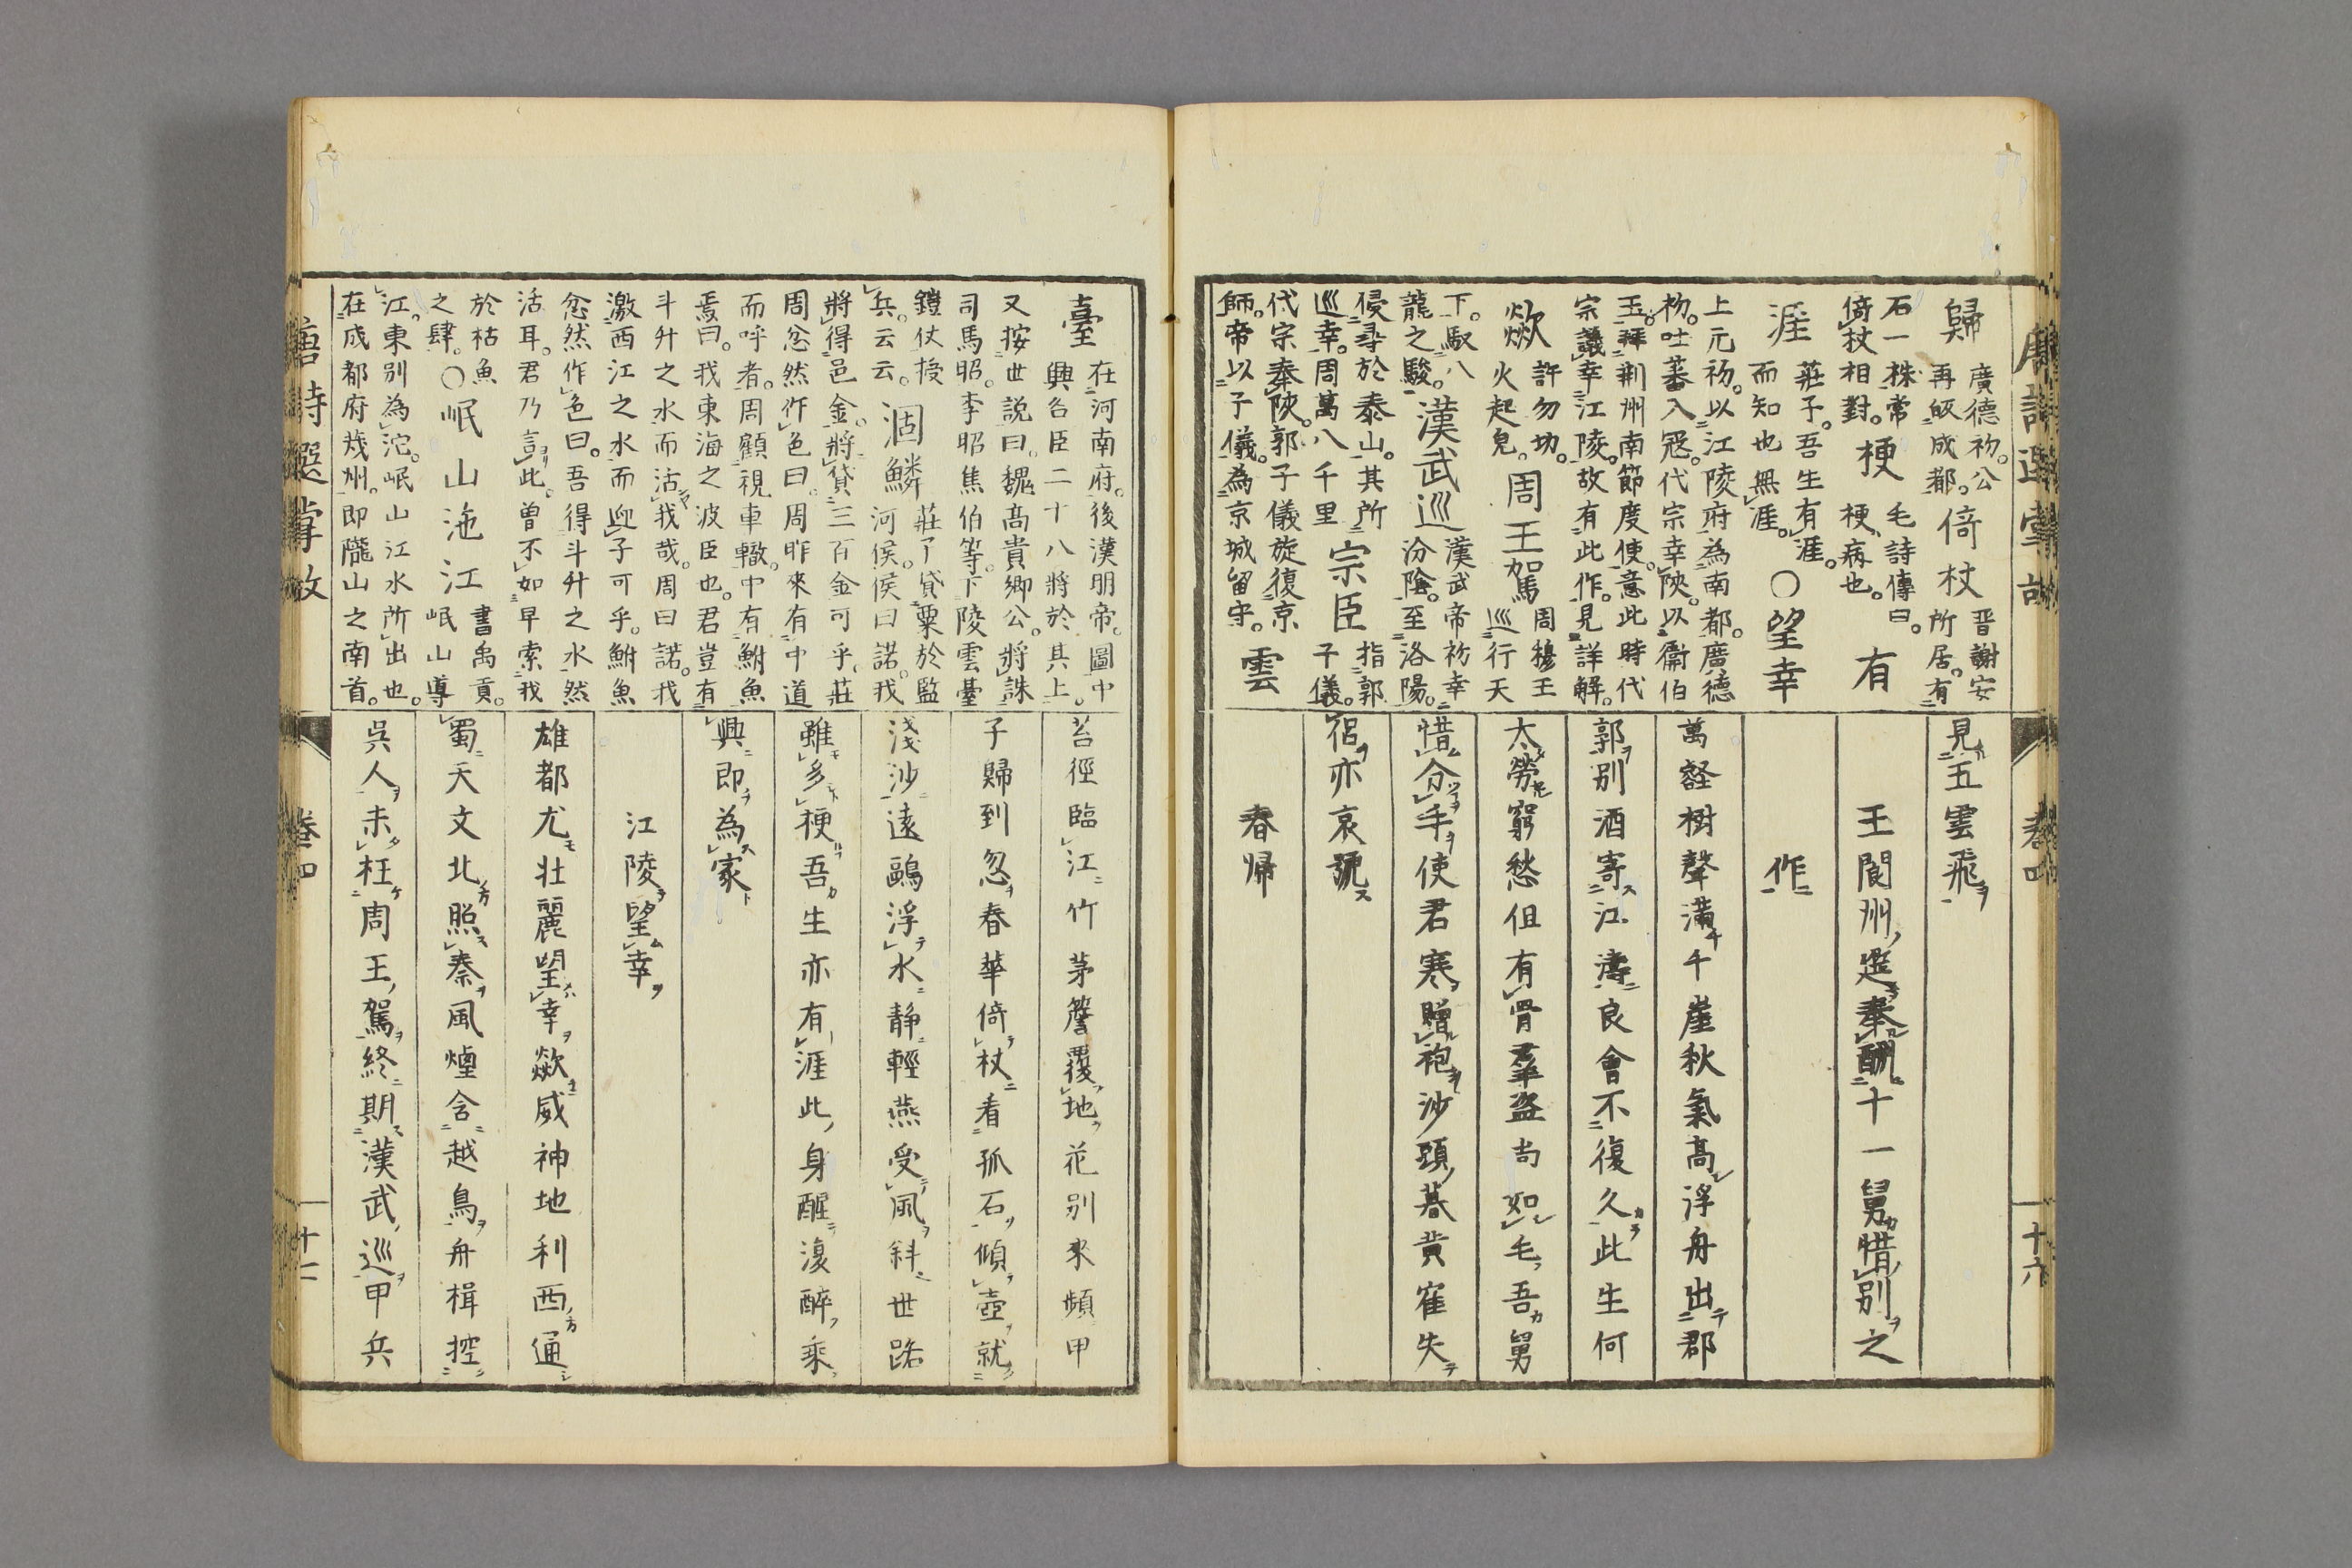 歸
廣德初。公
再皈成都。
倚杖
晋謝安
所居。有
石一株常
倚杖相對。
梗
毛詩傳曰。
梗病也。
有
涯
莊子。吾生有涯。
而知也無涯。
○望幸
上元初。以江陵府為南都。廣德
初。吐蕃入冦。代宗幸陝。以衞伯
玉拜荆州南節度使。意此時代
宗議幸江陵。故有此作。見詳解。
歘
許勿切。
火起皃。
周王駕
周穆王
巡行天
下。馭八
龍之駿。
漢武巡
漢武帝初幸
汾陰。至洛陽。
侵尋於泰山。其所
巡幸。周萬八千里
宗臣
指郭
子儀。
代宗奉陝。郭子儀旋復京
師。帝以子儀為京城留守。
雲
見五雲飛
王閬州筵奉酬十一舅惜別之
作
萬壑樹聲滿千崖秋氣高浮舟出郡
郭別酒寄江濤良會不復久此生何
太勞窮愁但有骨羣盜尚如毛吾舅
惜分手使君寒贈袍沙頭暮黄隺失
侶亦哀號
春帰
卷四
十六
臺
在河南府。後漢明帝。圖中
興各臣二十八將於其上。
又按世説曰。魏高貴鄉公。將誅
司馬昭。李昭焦伯等。下陵雲臺
鎧仗授
兵。云云。
涸鱗
莊子貸粟於監
河侯。侯曰諾。我
將得邑金。將貸三百金可乎。莊
周忿然作色曰。周昨來有中道
而呼者。周顧視車轍。中有鮒魚
焉曰。我東海之波臣也。君豈有
斗升之水而活我哉。周曰諾。我
激西江之水而迎子可乎。鮒魚
忿然作色曰。吾得斗升之水然
活耳。君乃言此。曾不如早索我
於枯魚
之肆。
○岷山沲江
書禹貢。
岷山導
江。東别為沱。岷山江水所出也。
在成都府茂州。即隴山之南首。
苔徑臨江竹茅簷覆地花别來頻甲
子歸到忽春華倚杖看孤石傾壺就
淺沙遠鷗浮水静輕燕受風斜世路
雖多梗吾生亦有涯此身醒復醉乘
興即為家
江陵望幸
雄都尤壮麗望幸歘威神地利西通
蜀天文北照秦風煙含越鳥舟楫控
吳人未枉周王駕終期漢武巡甲兵
唐詩選掌故
卷四